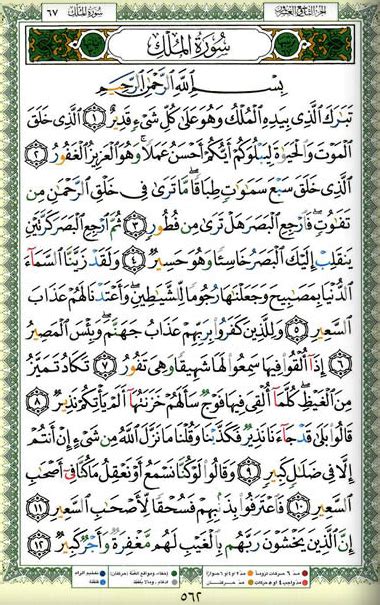 الجزء التاسع والعشرون ٦٧ سورة الملك
سُورَةُ المُلْكِ
بِسْمِ اللَّهِ الرَّحْمَٰنِ الرَّحِيمِ
تَبَارَكَ الَّذِي بِيَدِهِ الْمُلْكُ وَهُوَ عَلَىٰ كُلِّ شَيْءٍ قَدِيرٌ ١ الَّذِي خَلَقَ
الْمَوْتَ وَالْحَيَاةَ لِيَبْلُوَكُمْ أَيُّكُمْ أَحْسَنُ عَمَلًا وَهُوَ الْعَزِيزُ الْغَفُورُ ٢
الَّذِي خَلَقَ سَبْعَ سَمَاوَاتٍ طِبَاقًا مَّا تَرَىٰ فِي خَلْقِ الرَّحْمَٰنِ مِن
تَفَاوُتٍ فَارْجِعِ الْبَصَرَ هَلْ تَرَىٰ مِن فُطُورٍ ٣ ثُمَّ ارْجِعِ الْبَصَرَ كَرَّتَيْنِ
يَنقَلِبْ إِلَيْكَ الْبَصَرُ خَاسِئًا وَهُوَ حَسِيرٌ ٤ وَلَقَدْ زَيَّنَّا السَّمَاءَ
الدُّنْيَا بِمَصَابِيحَ وَجَعَلْنَاهَا رُجُومًا لِّلشَّيَاطِينِ وَأَعْتَدْنَا لَهُمْ عَذَابَ
السَّعِيرِ ٥ وَلِلَّذِينَ كَفَرُوا بِرَبِّهِمْ عَذَابُ جَهَنَّمَ وَبِئْسَ الْمَصِيرُ
٦ إِذَا أُلْقُوا فِيهَا سَمِعُوا لَهَا شَهِيقًا وَهِيَ تَفُورُ ٧ تَكَادُ تَمَيَّزُ
مِنَ الْغَيْظِ كُلَّمَا أُلْقِيَ فِيهَا فَوْجٌ سَأَلَهُمْ خَزَنَتُهَا أَلَمْ يَأْتِكُمْ نَذِيرٌ ٨
قَالُوا بَلَىٰ قَدْ جَاءَنَا نَذِيرٌ فَكَذَّبْنَا وَقُلْنَا مَا نَزَّلَ اللَّهُ مِن شَيْءٍ إِنْ أَنتُمْ
إِلَّا فِي ضَلَالٍ كَبِيرٍ ٩ وَقَالُوا لَوْ كُنَّا نَسْمَعُ أَوْ نَعْقِلُ مَا كُنَّا فِي أَصْحَابِ
السَّعِيرِ ١٠ فَاعْتَرَفُوا بِذَنبِهِمْ فَسُحْقًا لِّأَصْحَابِ السَّعِيرِ ١١
إِنَّ الَّذِينَ يَخْشَوْنَ رَبَّهُم بِالْغَيْبِ لَهُم مَّغْفِرَةٌ وَأَجْرٌ كَبِيرٌ ١٢
٥٦٢